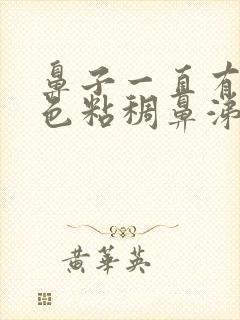 鼻子一直有
色粘稠鼻涕
黄华英